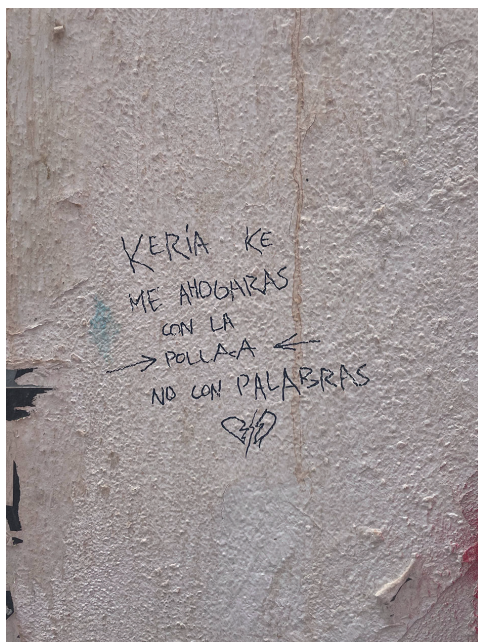 KERÍA KE
ME AHOGARAS
CON LA
POLLACA
NO CON PALABRAS